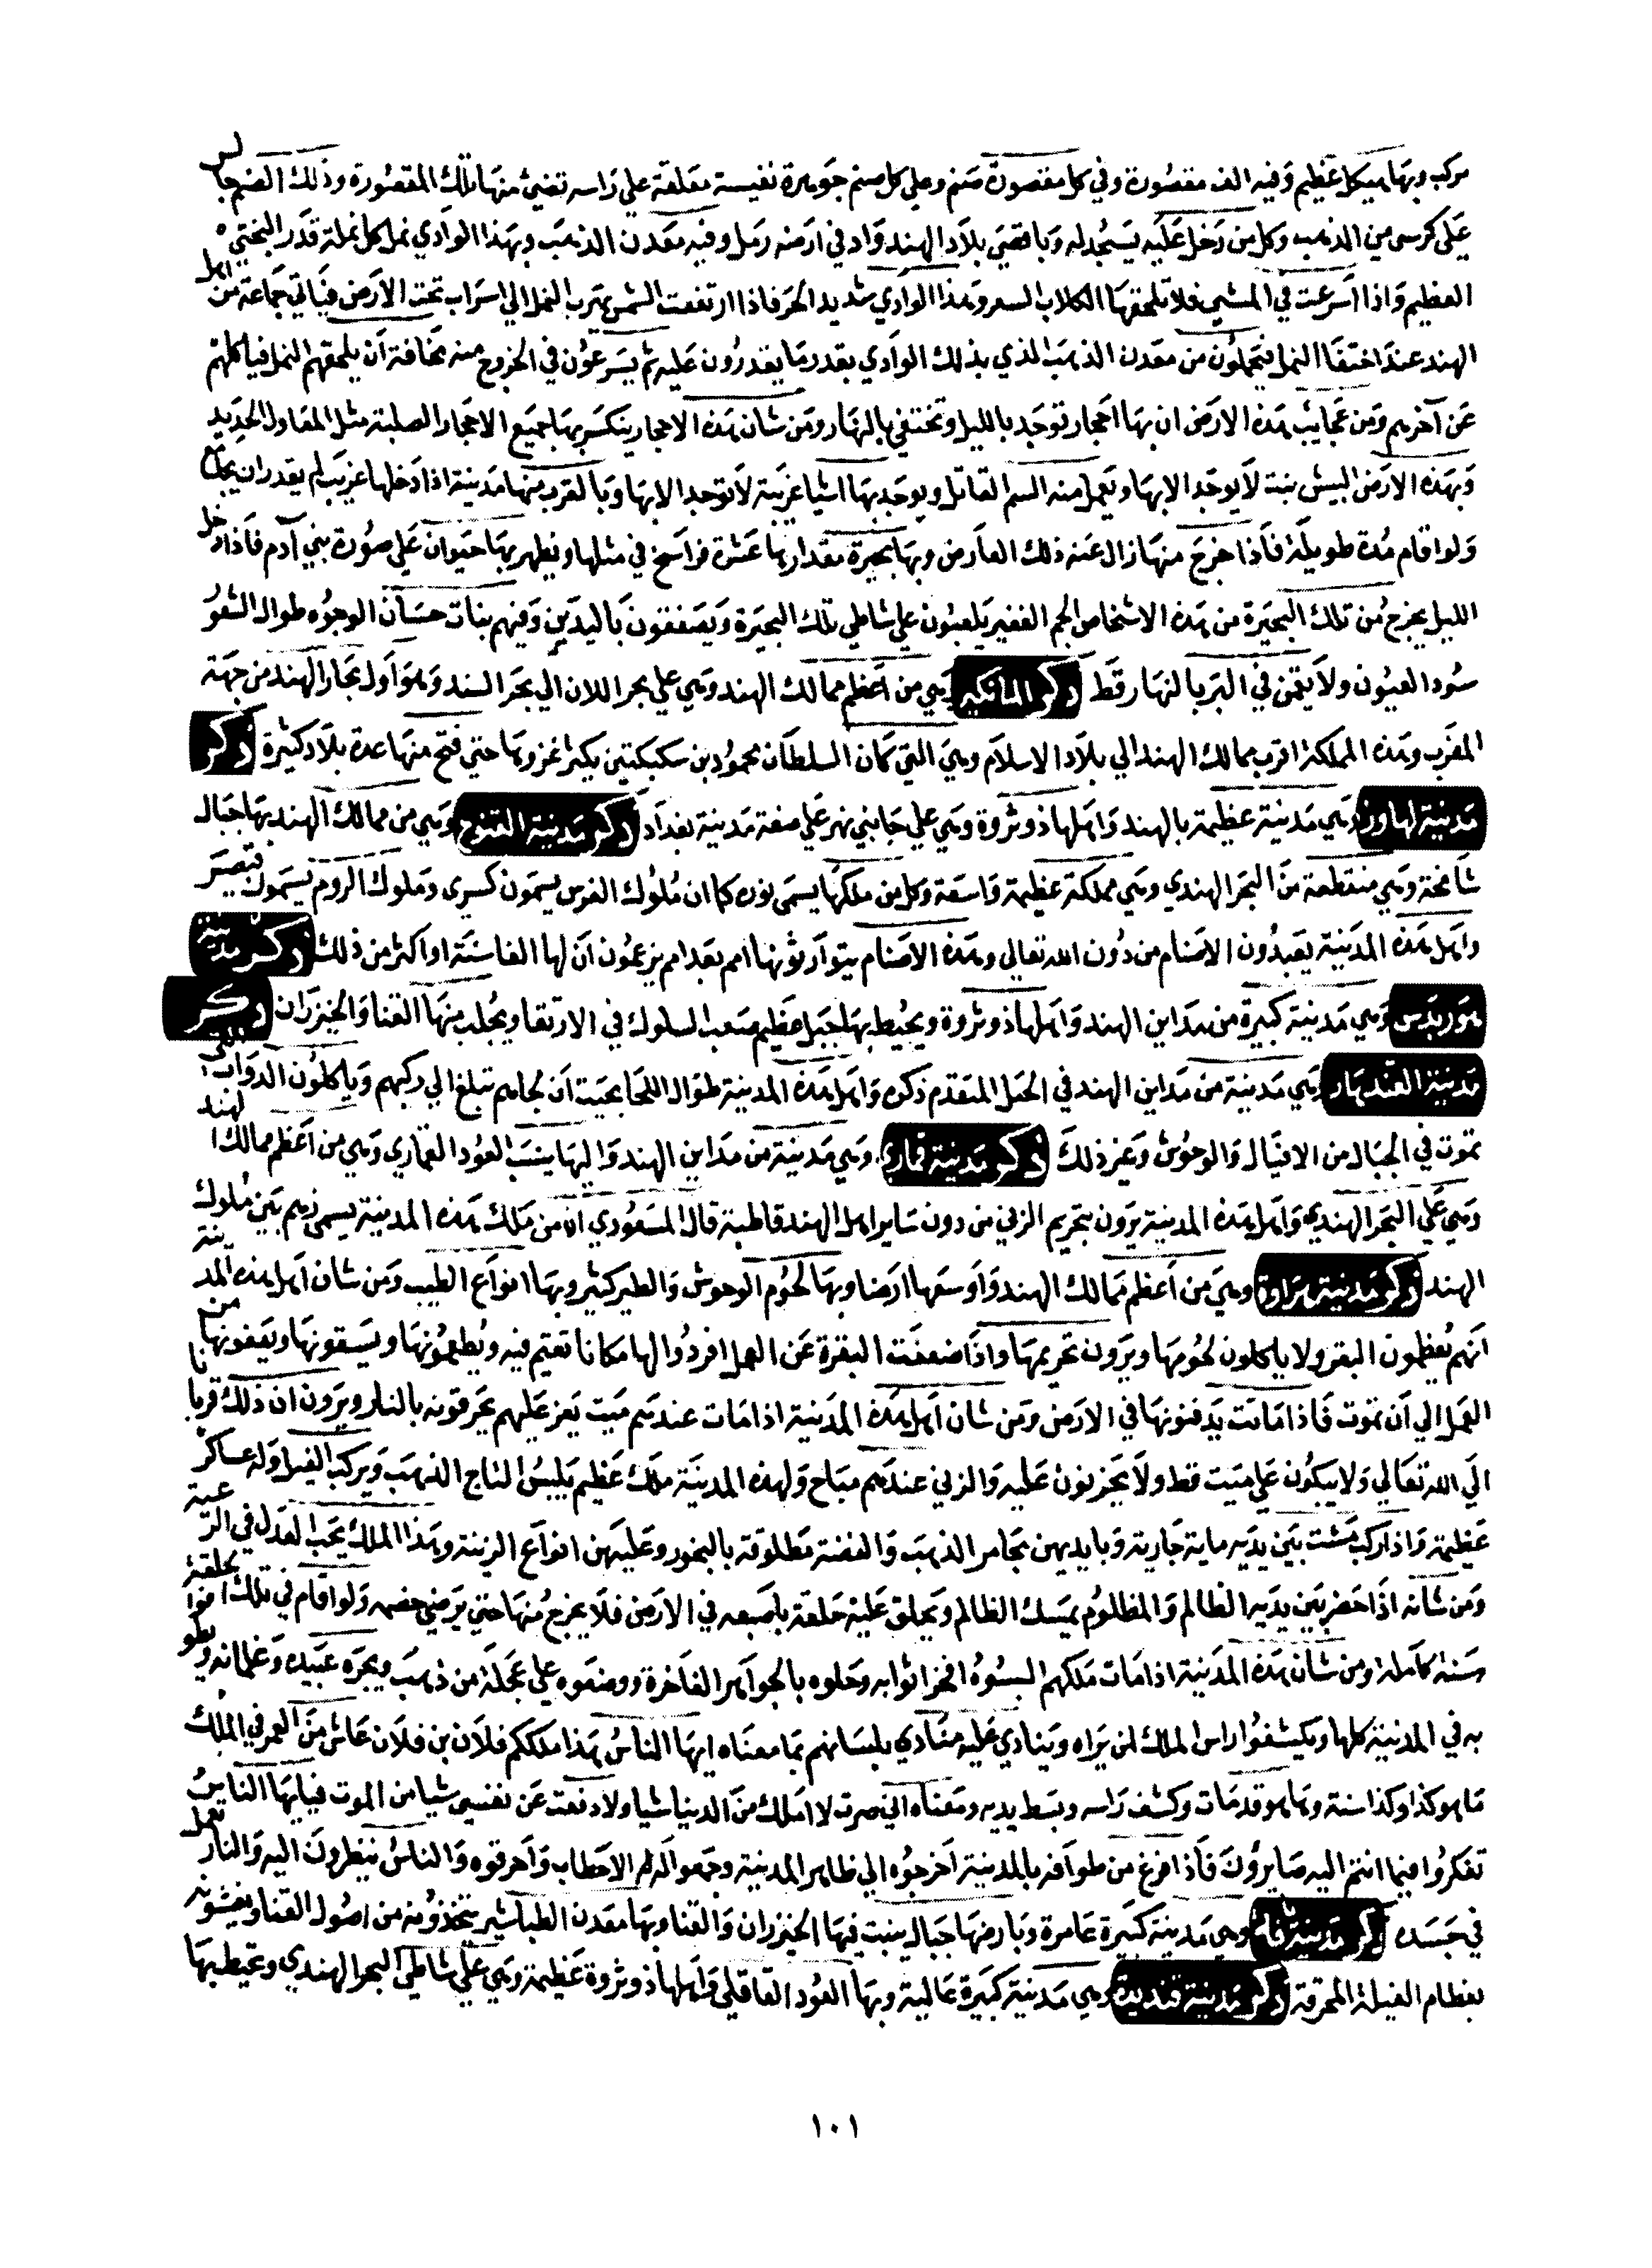 مركب وبها هيكل عظيم وفيه الف مقصورة وفي كل مقصورة صنم وعلي كل صنم جوهرة نفيسة معلقة علي راسه تضئ منها تلك المقصورة وذلك الصنم جالس
علي كرسي من الذهب وكل من دخل عليه يسجد له وباقصي بلاد الهند واد في ارضه رمل وفيه معدن الذهب وبهذا الوادي نمل كل نملة قدر البختي
العظيم واذا اسرعت في المشي فلا تلحقها الكلاب السعر وهذا الوادي شديد الحر فاذا ارتفعت الشمس يهرب النمل الي اسراب تحت الارض فياتي جماعة من اهل
الهند عند اختفا النمل فيحملون من معدن الذهب الذي بذلك الوادي بقدر ما يقدرون عليه ثم يسرعون في الخروج منه مخافة ان يلحقهم النمل فياكلهم
عن آخرهم ومن عجايب هذه الارض ان بها احجار توجد بالليل وتختفي بالنهار ومن شان هذه الاحجار ينكسر بها جميع الاحجار الصلبة مثل المعاول الحديد
وبهذه الارض البيش نبت لا يوجد الا بها ويعمل منه السم القاتل ويوجد بها اشيا غريبة لا توجد الا بها وبالقرب منها مدينة اذا دخلها غريب لم يقدر ان يجامع
ولو اقام مدة طويلة فاذا خرج منها زال عنه ذلك العارض وبها بحيرة مقدارها عشرة فراسخ في مثلها ويظهر بها حيوان علي صورة بني آدم فاذا دخل
الليل يخرج من تلك البحيرة من هذه الاشخاص الجم الغفير يلعبون علي شاطي تلك البحيرة ويصفقون باليدين وفيهم بنات حسان الوجوه طوال الشعور
سود العيون ولا يقمن في البر بالنهار قط ذكر المانكير وهي من اعظم ممالك الهند وهي علي بحر اللان الي بحر السند وهو اول بحار الهند من جهة
المغرب وهذه المملكة اقرب ممالك الهند الي بلاد الاسلام وهي التي كان السلطان محمود بن سكبكتين يكثر غزوها حتي فتح منها عدة بلاد كثيرة ذكر
مدينة لهاور وهي مدينة عظيمة بالهند واهلها ذو ثروة وهي علي جانبي نهر علي صفة مدينة بغداد ذكر مدينة القنوج وهي من ممالك الهند بها جبال
شامخة وهي منقطعة من البحر الهندي وهي مملكة عظيمة واسعة وكل من ملكها يسمي نوره كما ان ملوك الفرس يسمون كسري وملوك الروم يسمون قيصر
واهل هذه المدينة يعبدون الاصنام من دون الله تعالي وهذه الاصنام يتوارثونها امم بعد امم يزعمون ان لها الفا سنة او اكثر من ذلك ذكر مدينة
وهي مدينة كبيرة من مداين الهند واهلها ذو ثروة ويحيط بها جبل عظيم صعب السلوك في الارتقا ويجلب منها القنا والخيزران ذكر
مدينة القندهار وهي مدينة من مداين الهند في الجبل المتقدم ذكره واهل هذه المدينة طوال اللحا بحيث ان لحاهم تبلغ الي ركبهم وياكلون الدواب التي
تموت في الجبال من الافيال والوحوش وغير ذلك ذكر مدينة قمار وهي مدينة من مداين الهند واليها ينسب العود القماري وهي من اعظم ممالك الهند
وهي علي البحر الهندي واهل هذه المدينة يرون بتحريم الزني من دون ساير اهل الهند قاطبة قال المسعودي ان من ملك هذه المدينة يسمي زهم بين ملوك
الهند ذكر مدينة وهي من اعظم ممالك الهند واوسعها ارضا وبها لحوم الوحوش والطير كثير وبها انواع الطيب ومن شان اهل هذه المدينة
انهم يعظمون البقر ولا ياكلون لحومها ويرون تحريمها واذا ضعفت البقرة عن العمل افردوا لها مكانا تعتم فيه ويطعمونها ويسقونها ويعفونها من
العمل الي ان تموت فاذا ماتت يدفنونها في الارض ومن شان اهل هذه المدينة اذا مات عندهم ميت يعز عليهم يحرقونه بالنار ويرون ان ذلك قربانا
الي الله تعالي ولا يبكون علي ميت قط ولا يحزنون عليه والزني عندهم مباح ولهذه المدينة ملك عظيم يلبس التاج الذهب ويركب الفيل وله عساكر
عظيمة واذا ركب مشت بين يديه ماية جارية وبايديهن مجامر الذهب والفضة مطلوقة بالبخور وعليهن انواع الزينة وهذا الملك يحب العدل في الرعية
ومن شانه اذا حضر بين يديه الظالم والمظلوم يمسك الظالم ويحلق عليه حلقة باصبعه في الارض فلا يخرج منها حتي يرضي خصمه ولو اقام في تلك الحلقة
سنة كاملة ومن شان هذه المدينة اذا مات ملكهم البسوه افخر اثوابه وحلوه بالجواهر الفاخرة ووضعوه علي عجلة من ذهب ويجره عبيده وغلمانه ويطوفوا
به في المدينة كلها ويكشفوا راس الملك لمن يراه وينادي عليه منادي بلسانهم بما معناه ايها الناس هذا ملككم فلان بن فلان عاش من العمر في الملك
ما هو كذا وكذا سنة وها هو قد مات وكشف راسه وبسط يديه ومعناه اني صرت لا املك من الدنيا شيا ولا دفعت عن نفسي شيا من الموت فيا ايها الناس
تفكروا فيما انتم اليه صايرون فاذا فرغ من طوافه بالمدينة اخرجوه الي ظاهر المدينة وجمعوا له الاحطاب واحرقوه والناس ينظرون اليه والنار تعمل
في جسده ذكر مدينة وهي مدينة كبيرة عامرة وبارضها جبال ينبت فيها الخيزران والقنا وبها معدن الطباشير يتخذونه من اصول القنا ويغشونه
بعظام الفيلة المحرقة ذكر مدينة وهي مدينة كبيرة عالية وبها العود القاقلي واهلها ذو ثروة عظيمة وهي علي شاطي البحر الهندي وتحيط بها
١٠١